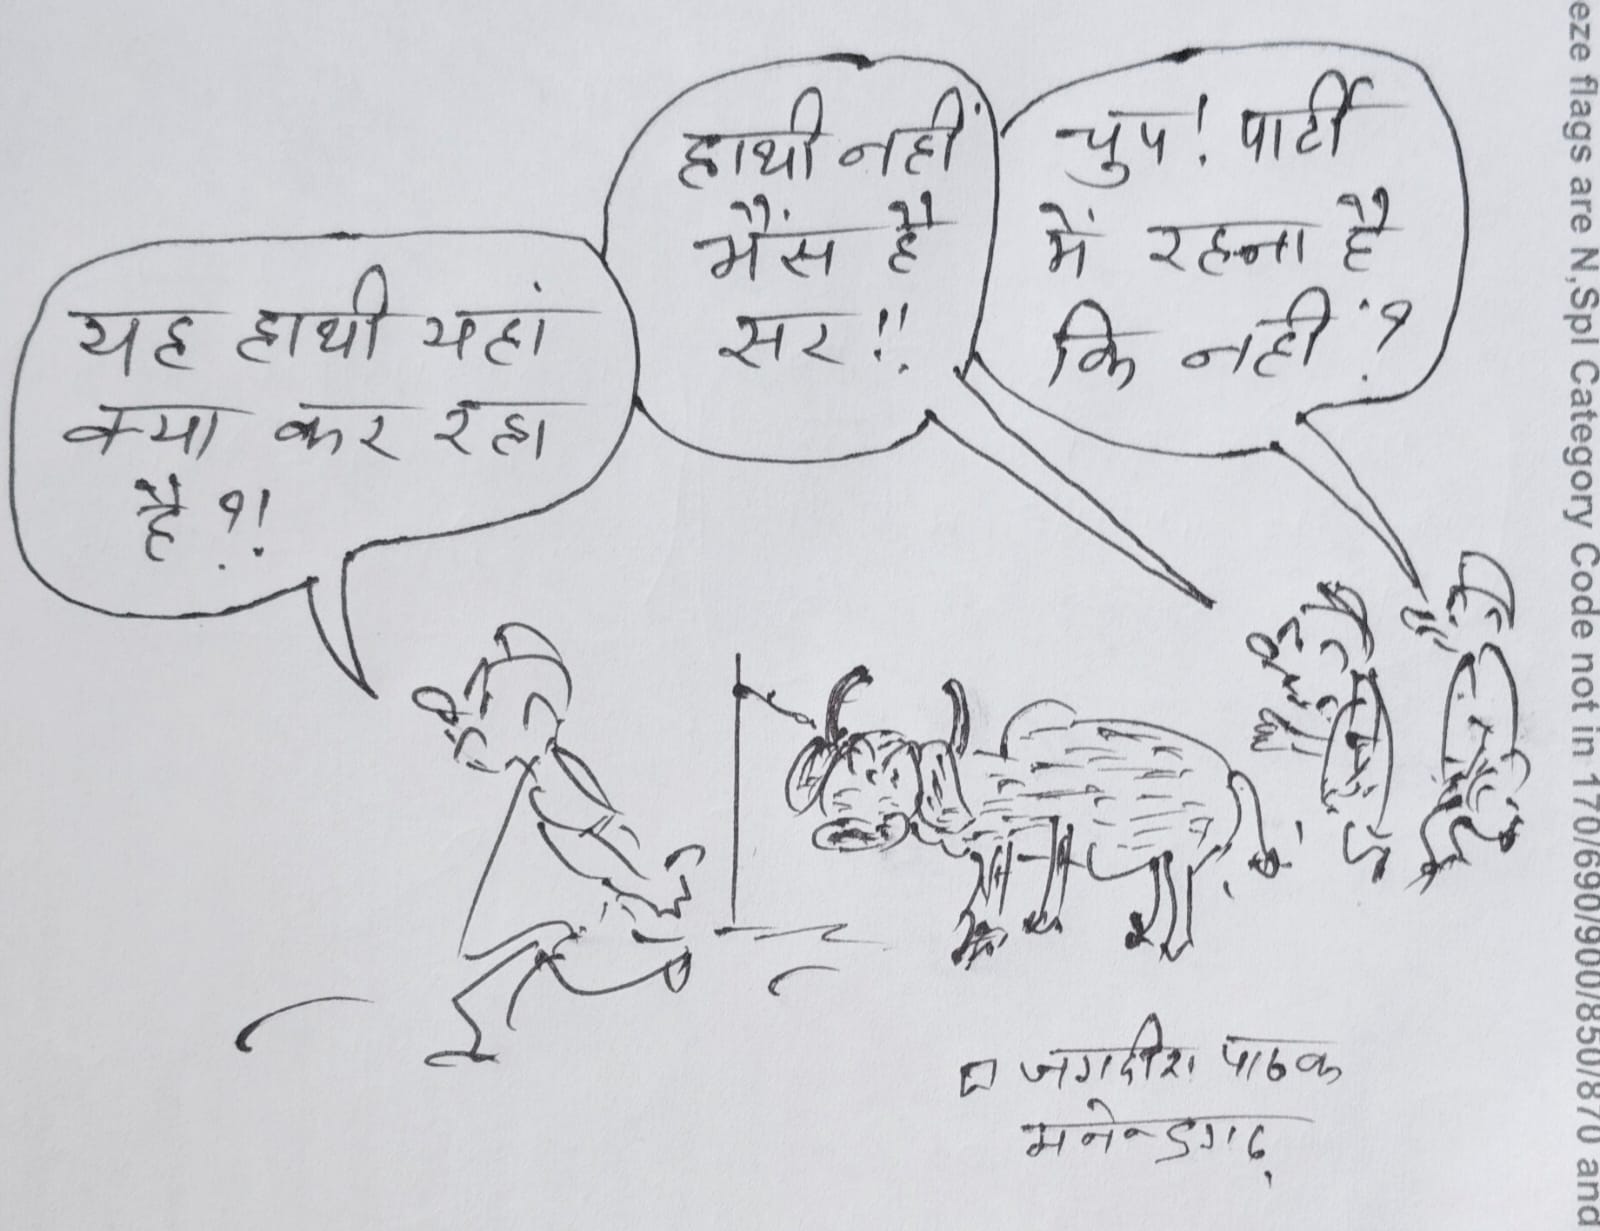 यह हाथी यहां
क्या कर रहा
है ?!
हाथी नहीं
भैंस है
सर !!
चुप! पार्टी
में रहना है
कि नहीं ?
जगदीश पाठक
मनेन्द्रगढ़
eze flags are N,Spl Category Code not in 170/690/900/850/870 and